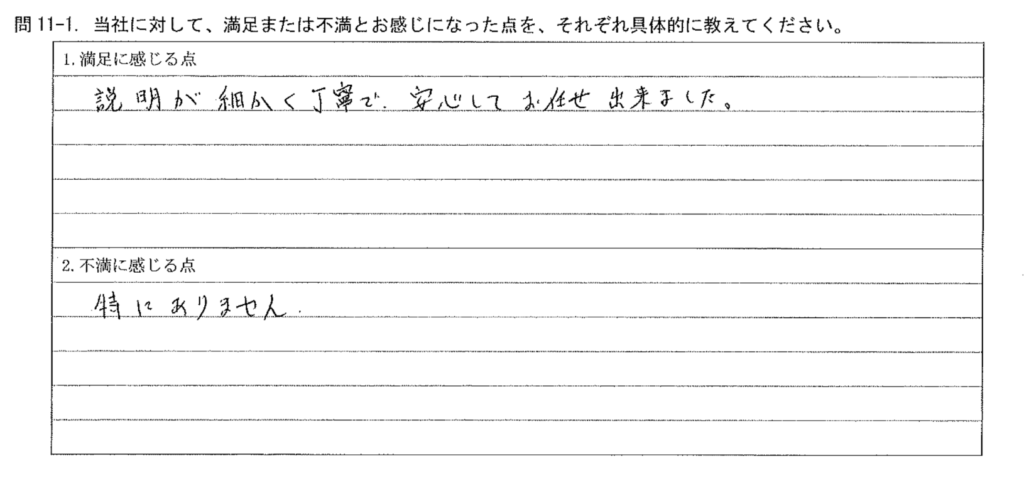 問11-1. 当社に対して、満足または不満とお感じになった点を、それぞれ具体的に教えてください。
1.満足に感じる点
説明が細かく丁寧で、安心してお任せ出来ました。
2.不満に感じる点
特にありません.